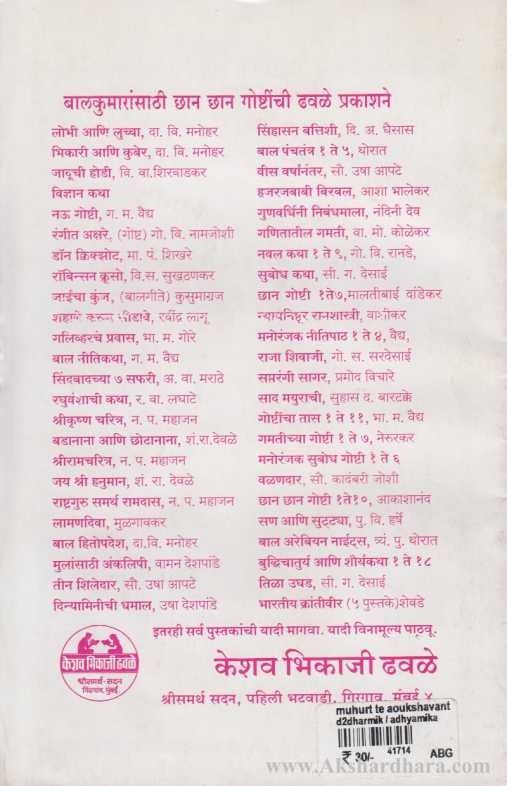 बालकुमारांसाठी छान छान गोष्टींची ढवळे प्रकाशने
लोभी आणि लुच्चा, दा. वि. मनोहर
भिकारी आणि कुबेर, दा. वि. मनोहर
जादूची होडी, वि. वा.शिरवाडकर
विज्ञान कथा
नऊ गोष्टी, ग. म. वैद्य
रंगीत अक्षरे, (गोष्ट) गो. वि. नामजोशी
डॉन क्विझोट, मा. पं. शिखरे
रॉबिन्सन क्रूसो, वि.स. सुखठणकर
जाईचा कुंज, (बालगीते) कुसुमाग्रज
शहाणे करून सोडावे, रवींद्र लागू
गलिव्हरचे प्रवास, भा. म. गोरे
बाल नीतिकथा, ग. म. वैद्य
सिंदबादच्या ७ सफरी, अ. वा. मराठे
रघुवंशाची कथा, र. वा. लघाटे
श्रीकृष्ण चरित्र, न. प. महाजन
बडानाना आणि छोटानाना, शं.रा.देवळे
श्रीरामचरित्र, न. प. महाजन
जय श्री हनुमान, शं. रा. देवळे
राष्ट्रगुरु समर्थ रामदास, न. प. महाजन
लामणदिवा, मुळगावकर
बाल हितोपदेश, दा.वि. मनोहर
मुलांसाठी अंकलिपी, वामन देशपांडे
तीन शिलेदार, सौ. उषा आपटे
दिन्यामिनीची धमाल, उषा देशपांडे
सिंहासन बत्तिशी, दि. अ. घैसास
बाल पंचतंत्र १ ते ५, थोरात
वीस वर्षानंतर, सौ. उषा आपटे
हजरजबाबी बिरबल, आशा भालेकर
गुणवर्धिनी निबंधमाला, नंदिनी देव
गणितातील गमती, वा. मो. कोळेकर
नवल कथा १ ते ९, गो. वि. रानडे,
सुबोध कथा, सी. ग. देसाई
छान गोष्टी १ते७,मालतीबाई दांडेकर
न्यायनिष्ठूर रामशास्त्री, वाशीकर
मनोरंजक नीतिपाठ १ ते ४, वैद्य,
राजा शिवाजी, गो. स. सरदेसाई
समरंगी सागर, प्रमोद विचारे
साद मयुराची, सुहास द. बारटक्के
गोष्टींचा तास १ ते ११, भा. म. वैद्य
गमतीच्या गोष्टी १ ते ७, नेरुरकर
मनोरंजक सुबोध गोष्टी १ ते ६
वळणदार, सौ. कादंबरी जोशी
छान छान गोष्टी १ते१०, आकाशानंद
सण आणि सुट्ट्या, पु. वि. हर्षे
बाल अरेबियन नाईट्स, त्र्यं. पु. थोरात
बुद्धिचातुर्य आणि शौर्यकथा १ ते १८
तिळा उघड, सी. ग. देसाई
भारतीय क्रांतीवीर (५ पुस्तके)शेवडे
इतरही सर्व पुस्तकांची यादी मागवा. यादी विनामूल्य पाठवू.
केशव भिकाजी ढवळे
श्रीसमर्थ सदन, पहिली भटवाडी, गिरगाव, मुंबई ४
केशव भिकाजी ढवळे
श्रीसमर्थ-सदन
गिरगाव, मुंबई
muhurt te aoukshavant
d2dharmik / adhyamika
₹ 30/- 41714 ABG
www.Akshardhara.com